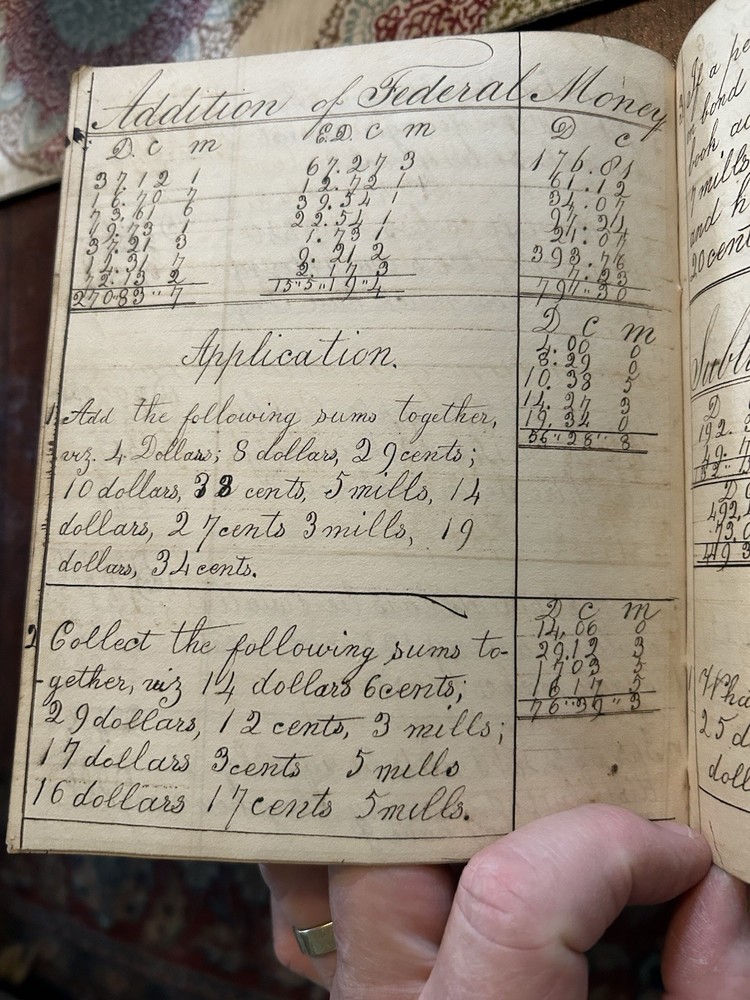 Addition of Federal Money
D. C m
3712 1
16.70 7
73.61 6
19.73 1
37.21 3
14.31 7
72.13 2
270"83" 7
E.D. C m
67.27 3
12.72 1
39.54 1
22.54 1
1.73 1
9.21 2
2.17 3
15"5"19"4
D C
176.81
61.12
34.07
97.24
21.04
393.76
7.23
797"30
Application.
D C m
4.00 0
8.29 0
10.38 5
14.27 3
19.34 0
56"28"8
1 Add the following sums together,
viz. 4 Dollars; 8 dollars, 29 cents;
10 dollars, 38 cents, 5 mills, 14
dollars, 27 cents 3 mills, 19
dollars, 34 cents.
D C m
14,06 0
29.12 3
17 03 5
16 17 5
76"39"3
2 Collect the following sums to-
-gether, viz 14 dollars 6 cents;
29 dollars, 12 cents, 3 mills;
17 dollars 3 cents 5 mills
16 dollars 17 cents 5 mills.
If a pe
bond
book ac
7 mills
and h
20 cent
D
192.
49.
D C
492,
73.0
449 3
25 d
doll